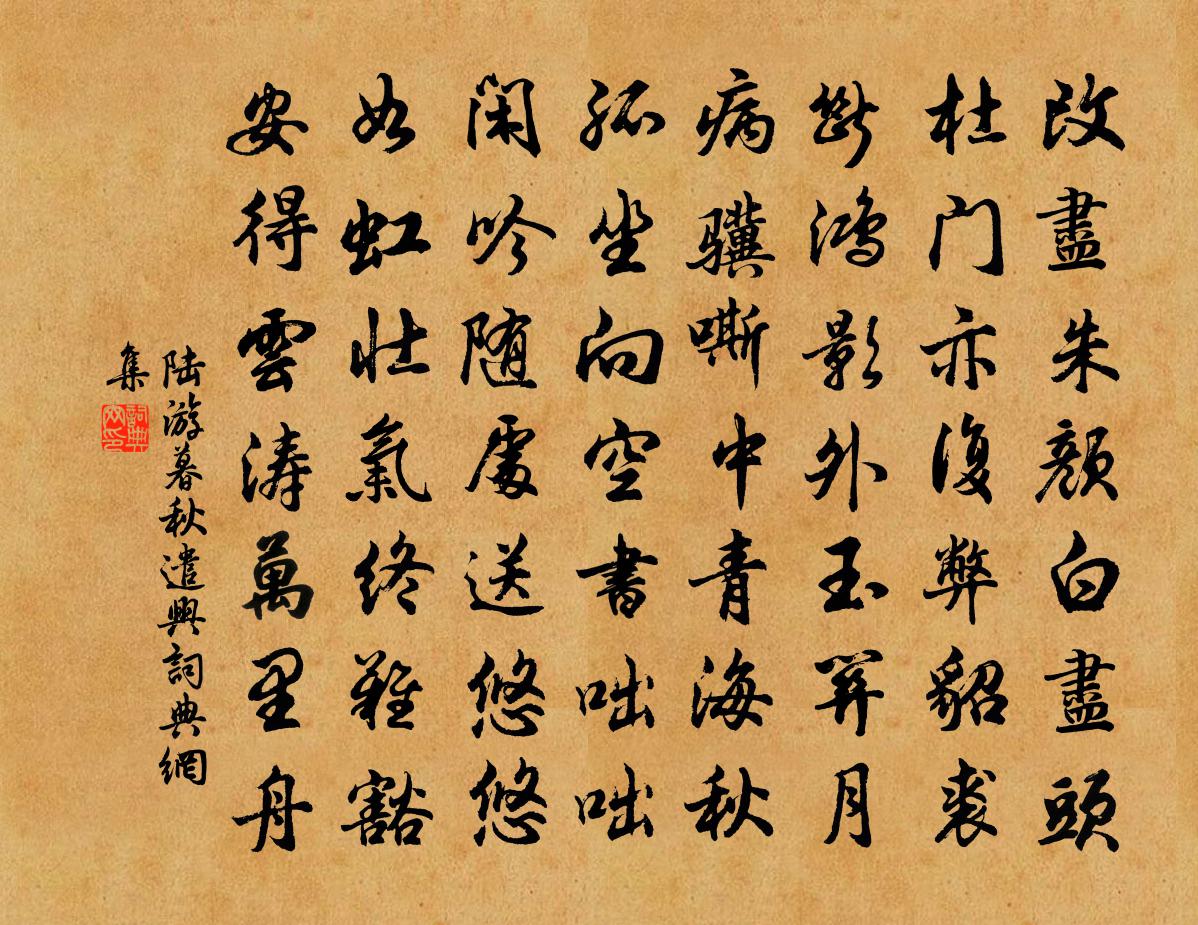 改盡朱顏白盡頭
杜門亦復弊貂裘
斷鴻影外玉關月
病驥嘶中青海秋
孤坐向空書咄咄
閑吟隨處送悠悠
如虹壯氣終難豁
安得雲濤萬里舟
陸游暮秋遣興詞典網
集
詞典网印